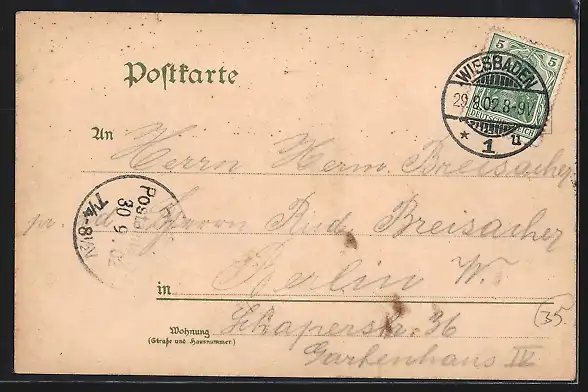 Postkarte
5 5
DEUTSCHES REICH
WIESBADEN
29.8.02.8-9V
* 1 u
An
Herrn Herm. Breisacher
Herrn Rud. Breisacher
30 9
7¼-8½V
in Berlin W.
Wohnung
(Straße und Hausnummer.)
Schaperstr. 36
Gartenhaus IV
35